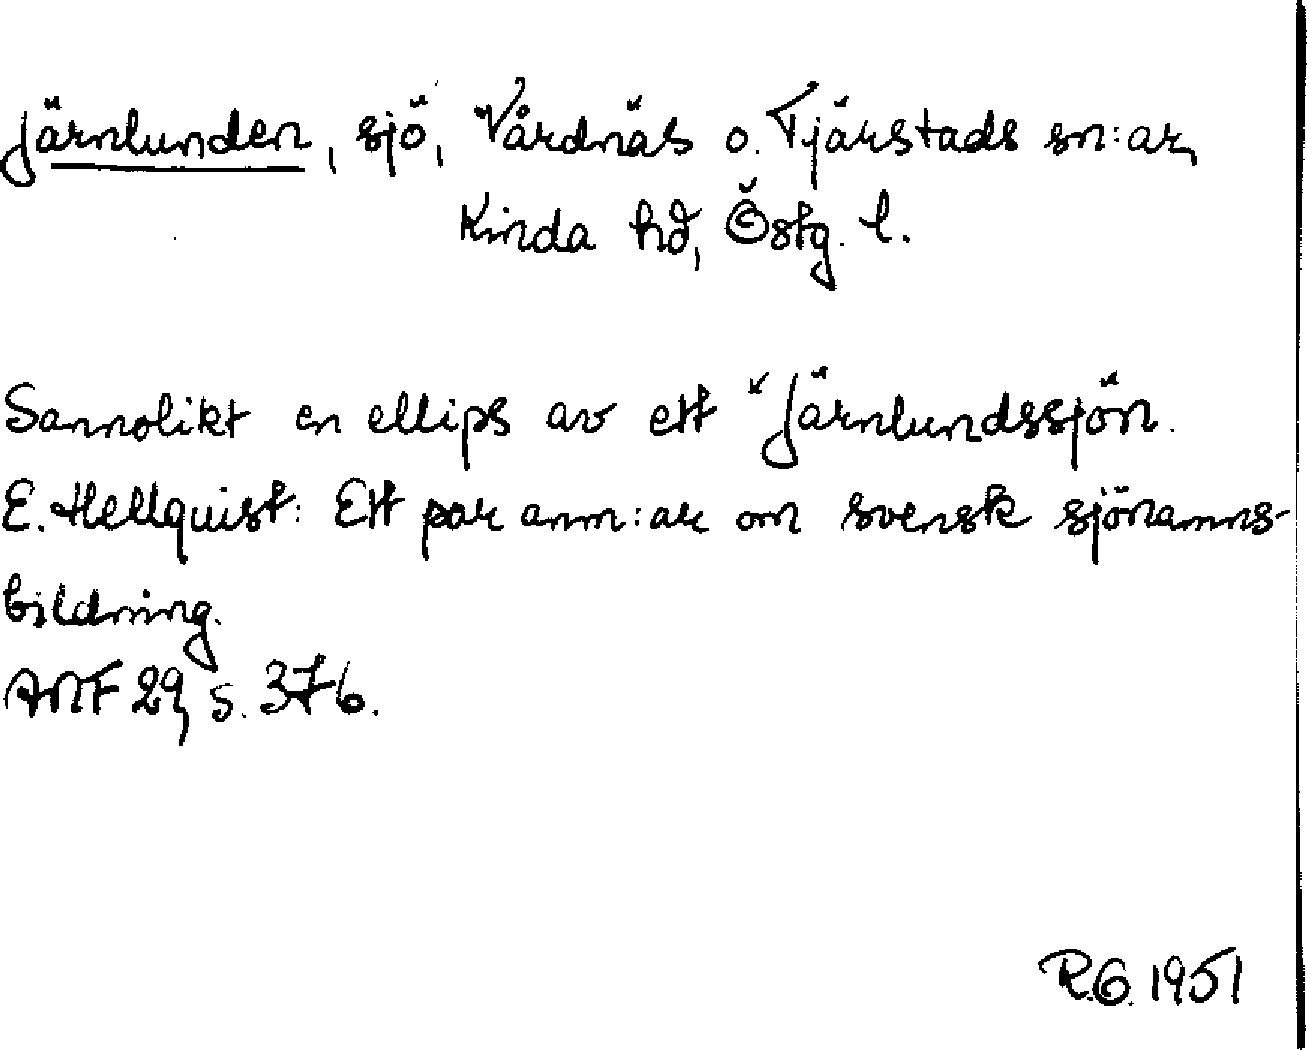 Järnlunden, sjö, Vårdnäs o. Tjärstads sn:ar,
Kinda hd, Östg. l.
Sannolikt en ellips av ett *Järnlundssjön.
E. Hellquist: Ett par anm:ar om svensk sjönamns-
bildning.
ANF 29, s. 376.
R.G. 1951